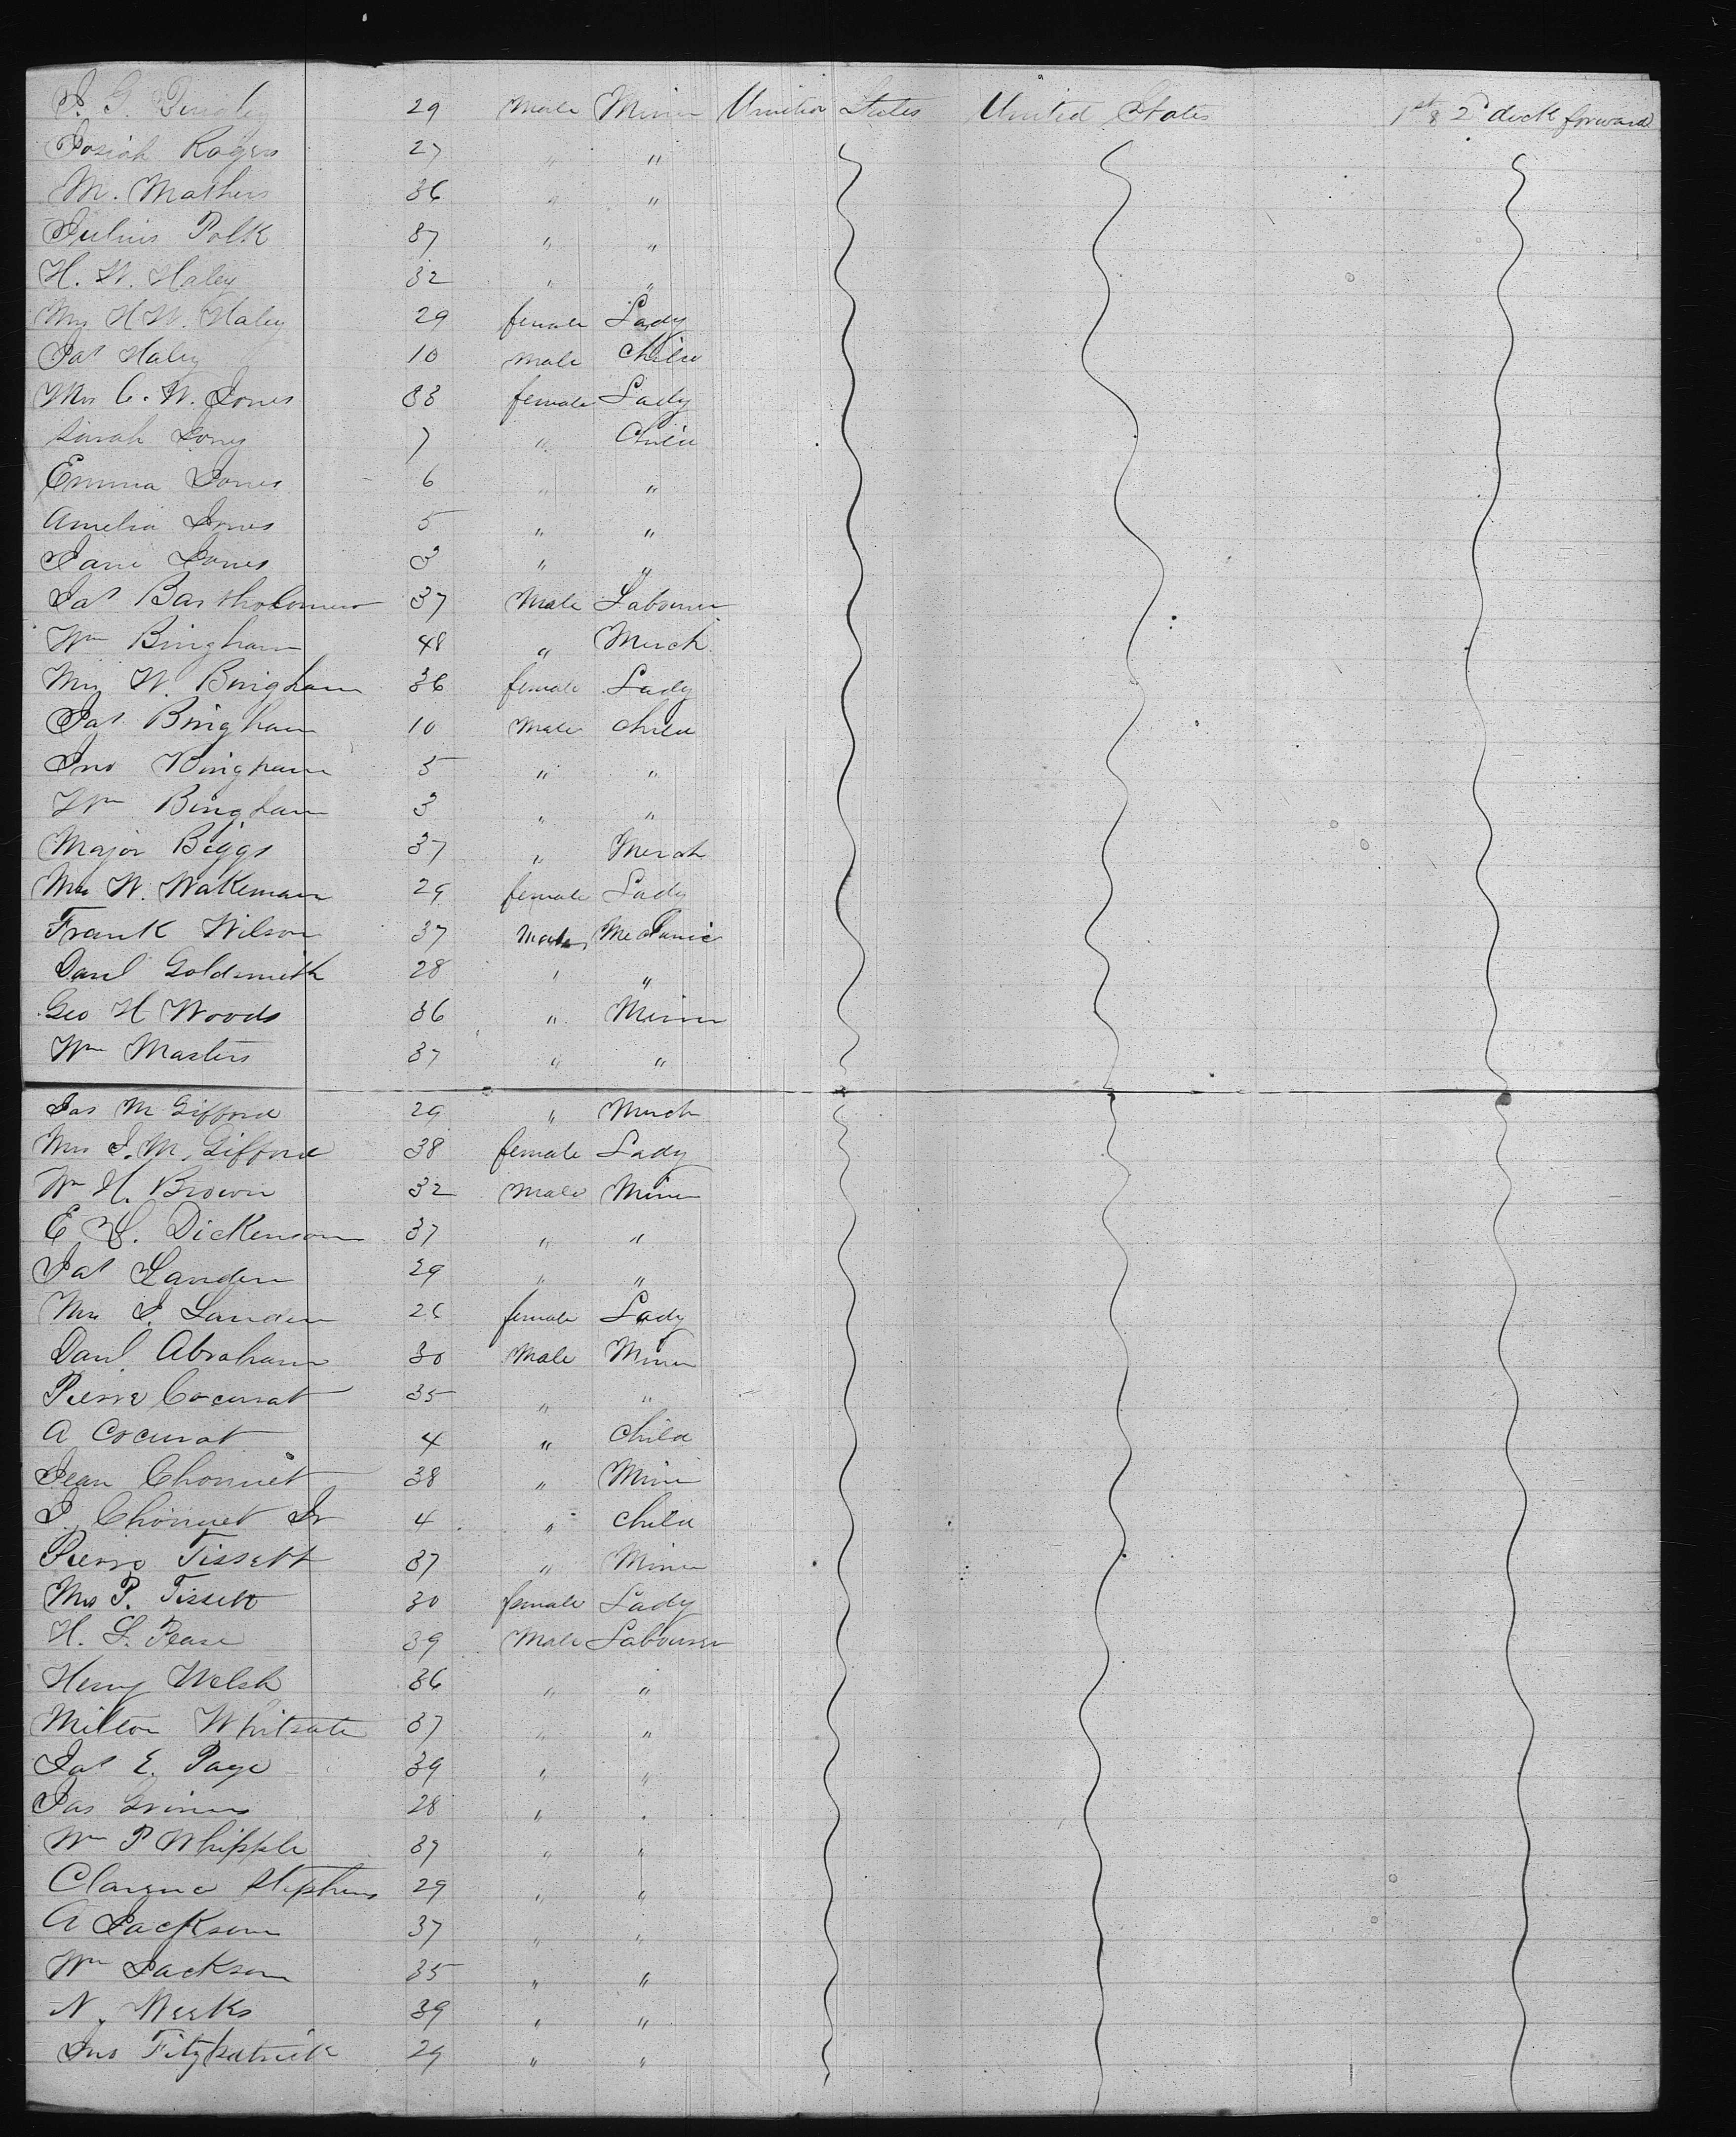 29 Male Miner United States United States 1st & 2d deck forward
Josiah Rogers 27 " "
M. Mathers 36 " "
Julius Polk 37 " "
H. W. Haley 32 " "
Mrs H W. Haley 29 female Lady
Jas Haley 10 male Child
Mrs C. W. Jones 33 female Lady
Sarah Jones 7 " Child
Emma Jones 6 " "
Amelia Jones 5 " "
Jane Jones 3 " "
Jas Bartholomew 37 Male Labourer
Wm Bingham 48 " Merch
Mrs W. Bingham 36 female Lady
Jas Bingham 10 Male Child
Jno Bingham 5 " "
Wm Bingham 3 " "
Major Biggs 37 " Merch
Mrs W. Wakeman 29 female Lady
Frank Wilson 37 Male Mechanic
Danl Goldsmith 28 " "
Geo H Woods 36 " Miner
Wm Masters 37 " "
Jas M Gifford 29 " Merch
Mrs J. M. Gifford 38 female Lady
Wm H. Brown 32 Male Miner
E. S. Dickenson 37 " "
Jas Landen 29 " "
Mrs J. Landen 26 female Lady
Danl Abraham 30 Male Miner
Pierre Cocurat 35 " "
A Cocurat 4 " Child
Jean Chonnet 38 " Miner
J. Chonnet Jr 4 " Child
Pierre Tissett 37 " Miner
Mrs P. Tissett 30 female Lady
H. L. Pease 39 Male Labourer
Henry Welsh 36 " "
Milton 37 " "
Jas E. Page 39 " "
Jas Grimes 28 " "
Wm P Whipple 37 " "
Clarence Stephens 29 " "
A Jackson 37 " "
Wm Jackson 35 " "
N. Weeks 39 " "
Jno Fitzpatrick 29 " "